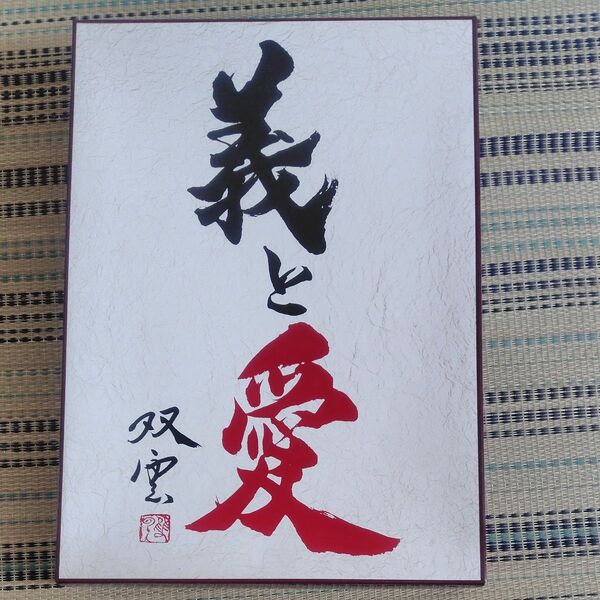 義と愛
双雲